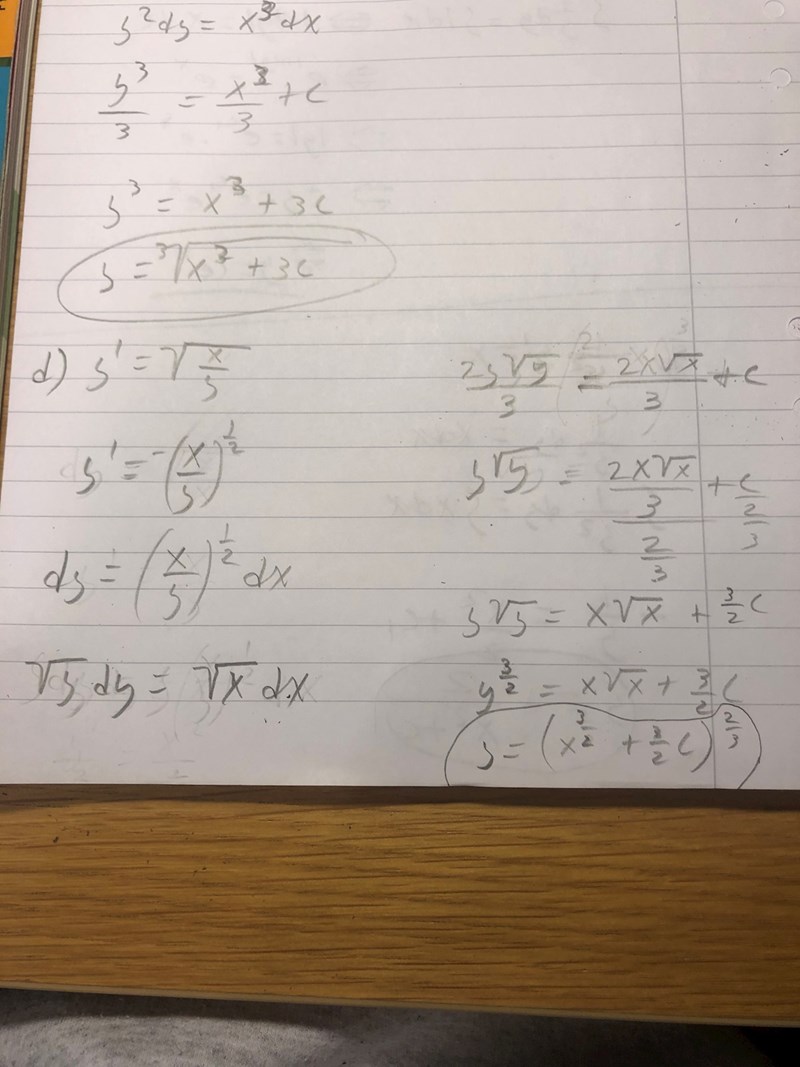 y² dy = x² dx
y³/3 = x³/3 + c
y³ = x³ + 3c
y = ³√(x³ + 3c)
d) y' = √(x/y)
y' = (x/y)^(1/2)
dy = (x/y)^(1/2) dx
√y dy = √x dx
2y√y/3 = 2x√x/3 + c
y√y = (2x√x/3)/(2/3) + c/(2/3)
y√y = x√x + 3/2 c
y^(3/2) = x√x + 3/2 c
y = (x^(3/2) + 3/2 c)^(2/3)